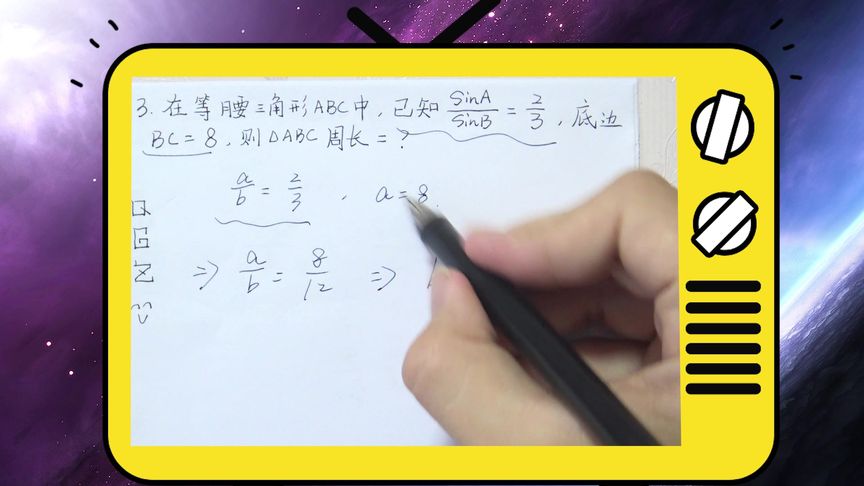 3. 在等腰三角形ABC中,已知 SinA/SinB = 2/3 , 底边
BC = 8 , 则ΔABC 周长 = ?
a/b = 2/3 , a = 8.
⇒ a/b = 8/12 ⇒
Q
G
Z